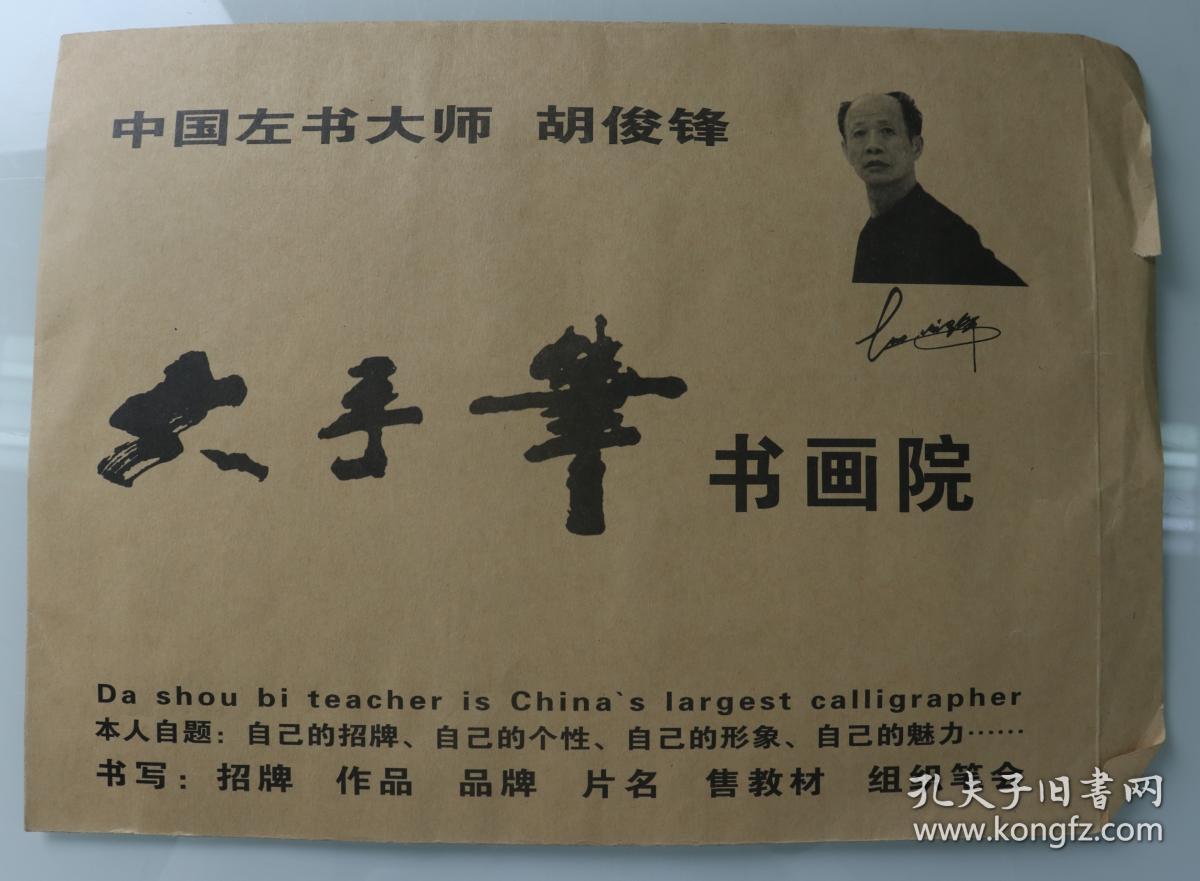 中国左书大师 胡俊锋
大手筆 书画院
Da shou bi teacher is China`s largest calligrapher
本人自题：自己的招牌、自己的个性、自己的形象、自己的魅力……
书写：招牌 作品 品牌 片名 售教材 组织笔会
孔夫子旧书网
www.kongfz.com